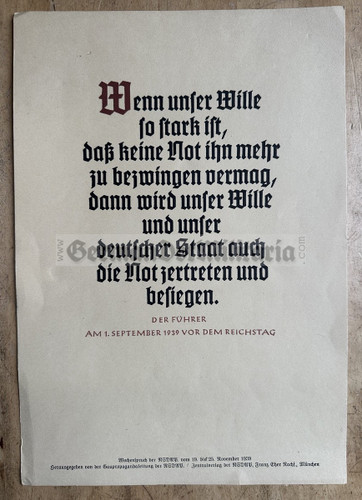 Wenn unser Wille
so stark ist,
daß keine Not ihn mehr
zu bezwingen vermag,
dann wird unser Wille
und unser
deutscher Staat auch
die Not zertreten und
besiegen.
DER FÜHRER
AM 1. SEPTEMBER 1939 VOR DEM REICHSTAG
Wochenspruch der NSDAP. vom 19. bis 25. November 1939
Herausgegeben von der Hauptpropagandaleitung der NSDAP. / Zentralverlag der NSDAP., Franz Eher Nachf., München